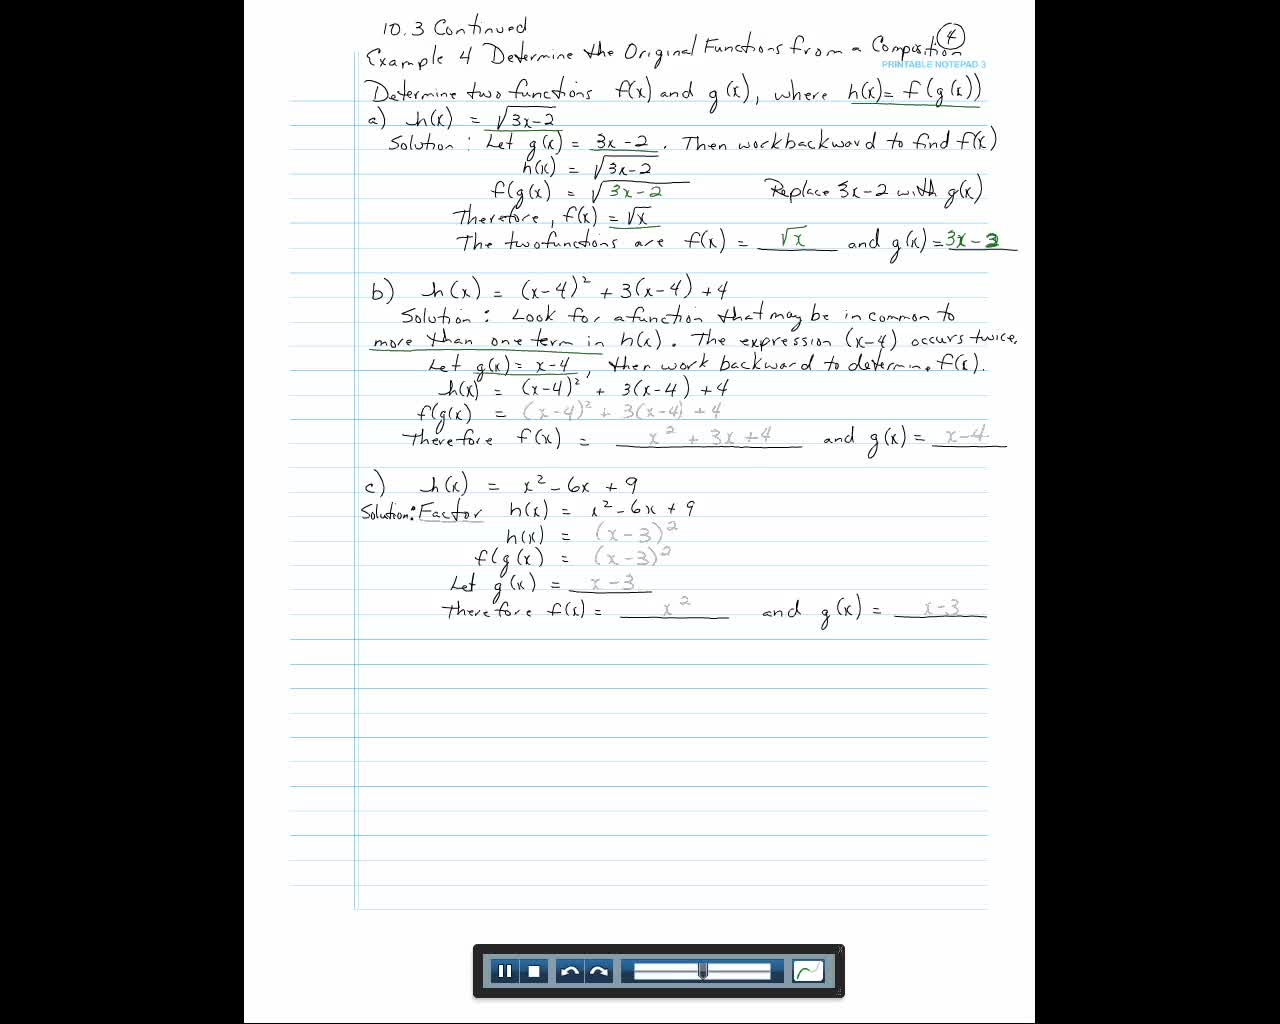 10.3 Continued
4
Example 4 Determine the Original Functions from a Composition
PRINTABLE NOTEPAD 3
Determine two functions f(x) and g(x), where h(x) = f(g(x))
a) h(x) = √3x-2
Solution: Let g(x) = 3x-2. Then work backward to find f(x)
h(x) = √3x-2
f(g(x) = √3x-2 Replace 3x-2 with g(x)
Therefore, f(x) = √x
The two functions are f(x) = √x and g(x) = 3x-3
b) h(x) = (x-4)² + 3(x-4) + 4
Solution: Look for a function that may be in common to
more than one term in h(x). The expression (x-4) occurs twice.
Let g(x) = x-4, then work backward to determine f(x).
h(x) = (x-4)² + 3(x-4) + 4
f(g(x) = (x-4)² + 3(x-4) + 4
Therefore f(x) = x² + 3x + 4 and g(x) = x-4
c) h(x) = x² - 6x + 9
Solution: Factor h(x) = x² - 6x + 9
h(x) = (x-3)²
f(g(x) = (x-3)²
Let g(x) = x-3
Therefore f(x) = x² and g(x) = x-3